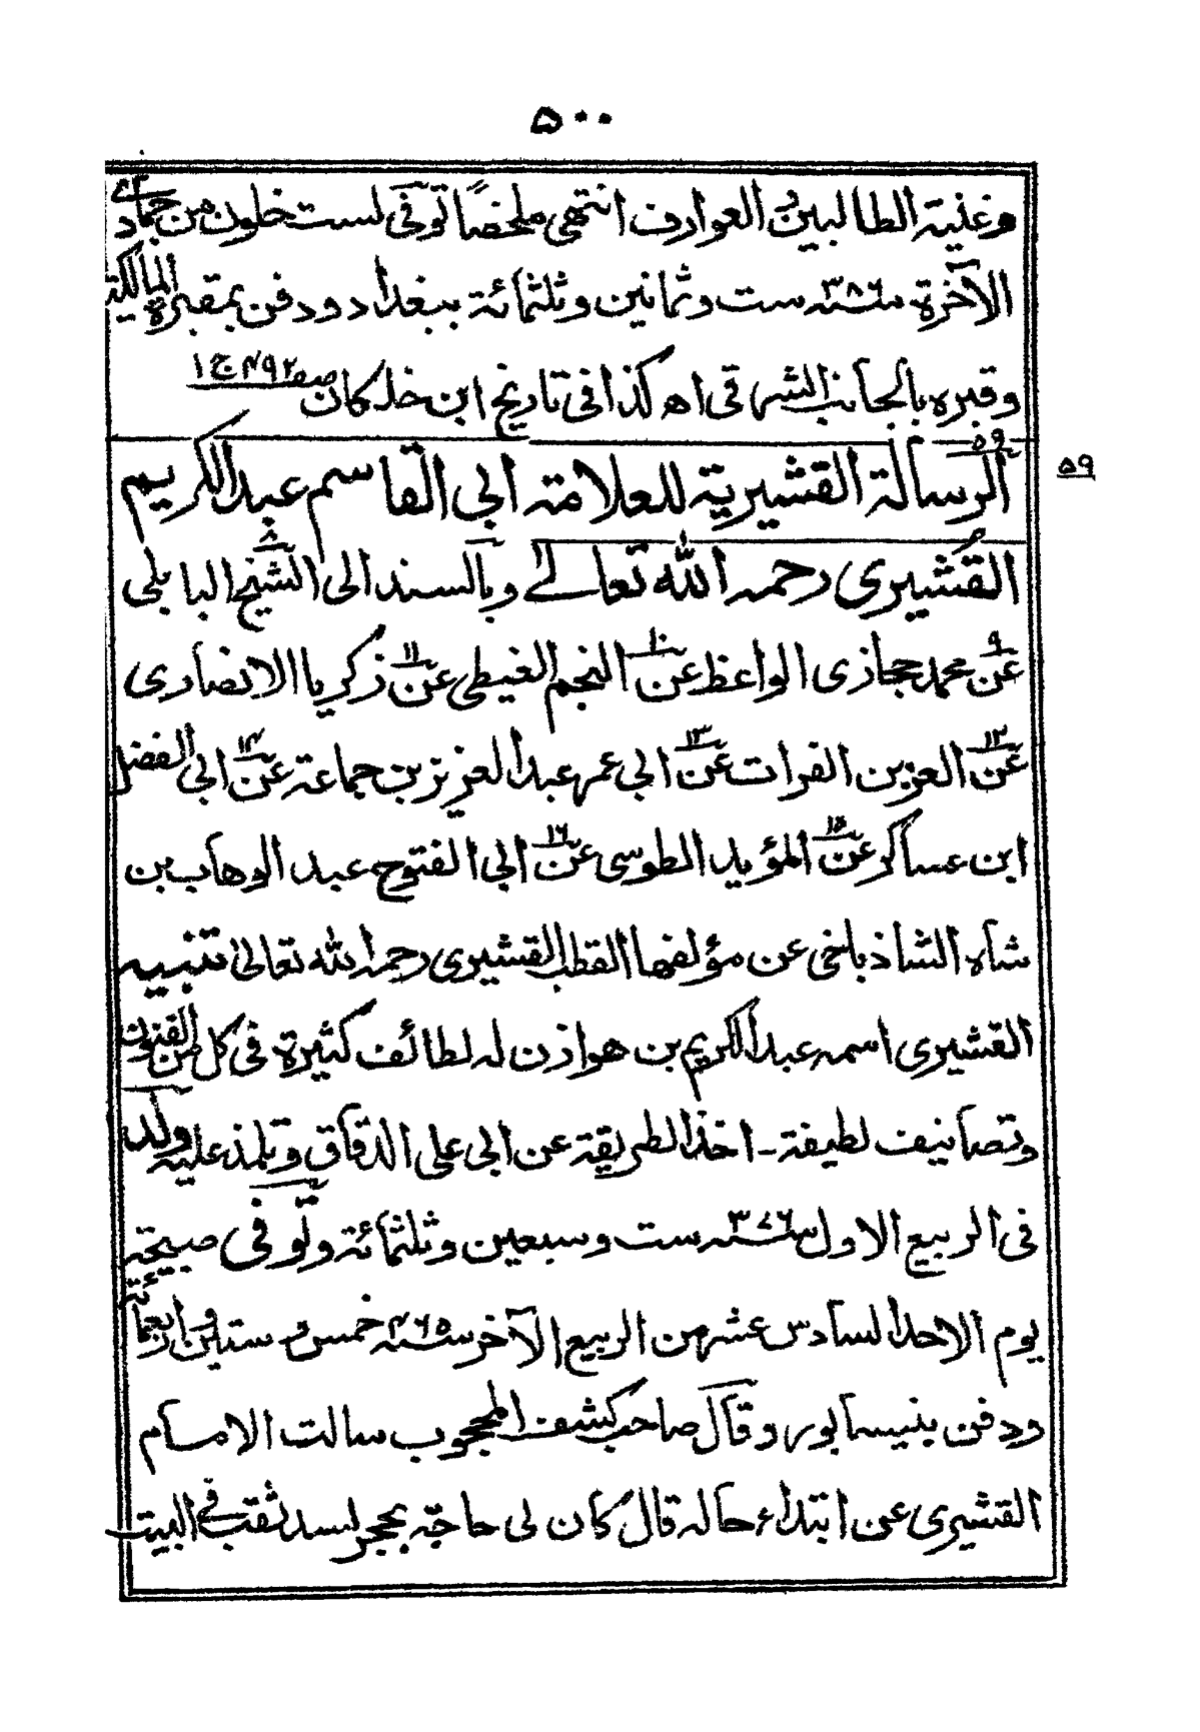 ٥٠٠
وغنية الطالبين والعوارف انتهى ملخصًا توفى لست خلون من جمادى
الآخرة سنة ٣٨٦ ست وثمانين وثلثمائة ببغداد ودفن بمقبرة المالكية
وقبره بالجانب الشرقى اه كذا فى تاريخ ابن خلكان صفـ ٤٩٢ ج ١
٥٩
الرسالة القشيرية للعلامة ابى القاسم عبد الكريم
٥٩
القُشيرى رحمه الله تعالے وبالسند الى الشيخ البابلى ٨
عن ٩ محمد حجازى الواعظ عن ١٠ النجم الغيطى عن ١١ زكريا الانصارى
عن ١٢ العز بن الفرات عن ١٣ ابى عمر عبد العزيز بن جماعة عن ١٤ ابى الفضل
ابن عساكر عن ١٥ المؤيد الطوسى عن ١٦ ابى الفتوح عبد الوهاب بن
شاه الشاذياخى عن مؤلفها القطب القشيرى رحمه الله تعالى تنبيه
القشيرى اسمه عبد الكريم بن هوازن له لطائف كثيرة فى كل من الفنون
وتصانيف لطيفة - اخذ الطريقة عن ابى على الدقاق وتلمذ عليه ولد
فى الربيع الاول سنة ٣٧٦ ست وسبعين وثلثمائة وتوفى صبيحة
يوم الاحد السادس عشر من الربيع الآخر سنة ٤٦٥ خمس وستين واربعمائة
ودفن بنيسابور وقال صاحب كشف المحجوب سالت الامام
القشيرى عن ابتداء حاله قال كان لى حاجة بحجر لسد ثقب فے البيت